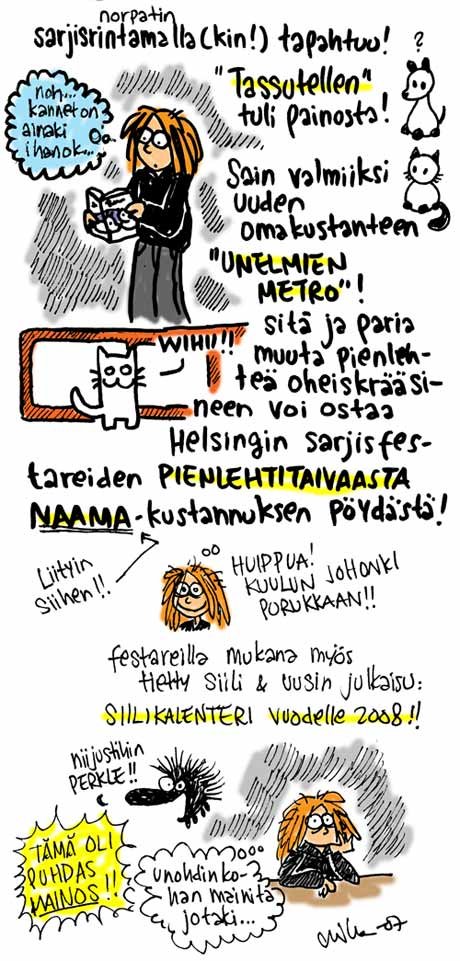 norpatin
sarjisrintamalla(kin!) tapahtuu!
?
noh...
kannet on
ainaki
ihan ok...
"Tassutellen"
tuli painosta!
Sain valmiiksi
uuden
omakustanteen
"UNELMIEN
METRO"!
WIHII!!
sitä ja paria
muuta pienleh-
teä oheiskrääsi-
neen voi ostaa
Helsingin sarjisfes-
tareiden PIENLEHTITAIVAASTA
NAAMA-kustannuksen pöydästä!
Liityin
siihen!!
HUIPPUA!
KUULUN JOHONKI
PORUKKAAN!!
festareilla mukana myös
tietty Siili & uusin julkaisu:
SIILIKALENTERI vuodelle 2008!!
niijustihin
PERKLE!!
TÄMÄ OLI
PUHDAS
MAINOS!!
unohdinko-
han mainita
jotaki...
-07